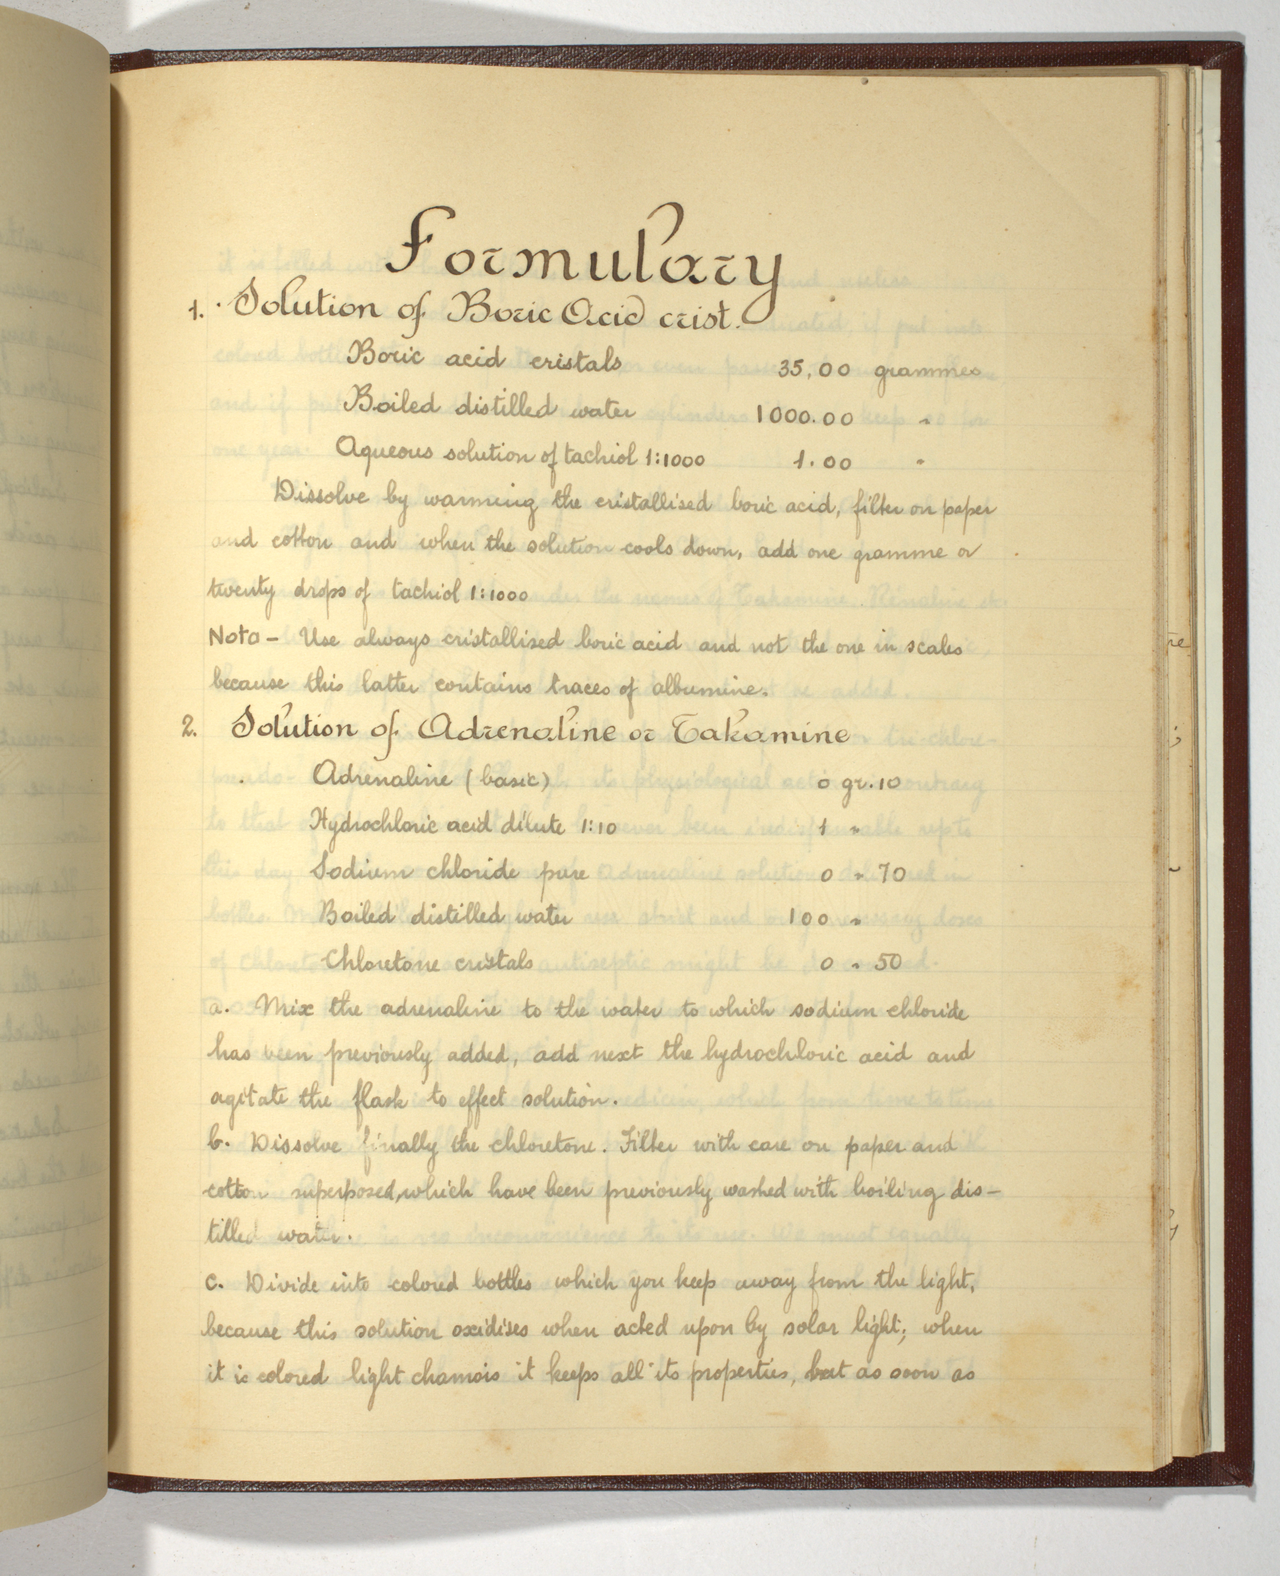 Formulary
1. Solution of Boric Acid crist.
Boric acid cristals 35,00 grammes
Boiled distilled water 1000.00 "
Aqueous solution of tachiol 1:1000 1.00 "
Dissolve by warming the cristallised boric acid, filter on paper
and cotton and when the solution cools down, add one gramme or
twenty drops of tachiol 1:1000
Nota - Use always cristallized boric acid and not the one in scales
because this latter contains traces of albumine.
2. Solution of Adrenaline or Takamine
Adrenaline (basic) 0 gr. 10
Hydrochloric acid dilute 1:10 1 "
Sodium chloride pure 0 " 70
Boiled distilled water 100 "
Chloretone cristals 0 " 50
a. Mix the adrenaline to the water to which sodium chloride
has been previously added, add next the hydrochloric acid and
agitate the flask to effect solution.
b. Dissolve finally the chloretone. Filter with care on paper and
cotton superposed, which have been previously washed with boiling dis-
tilled water.
c. Divide into colored bottles which you keep away from the light,
because this solution oxidises when acted upon by solar light; when
it is colored light chamois it keeps all its properties, but as soon as